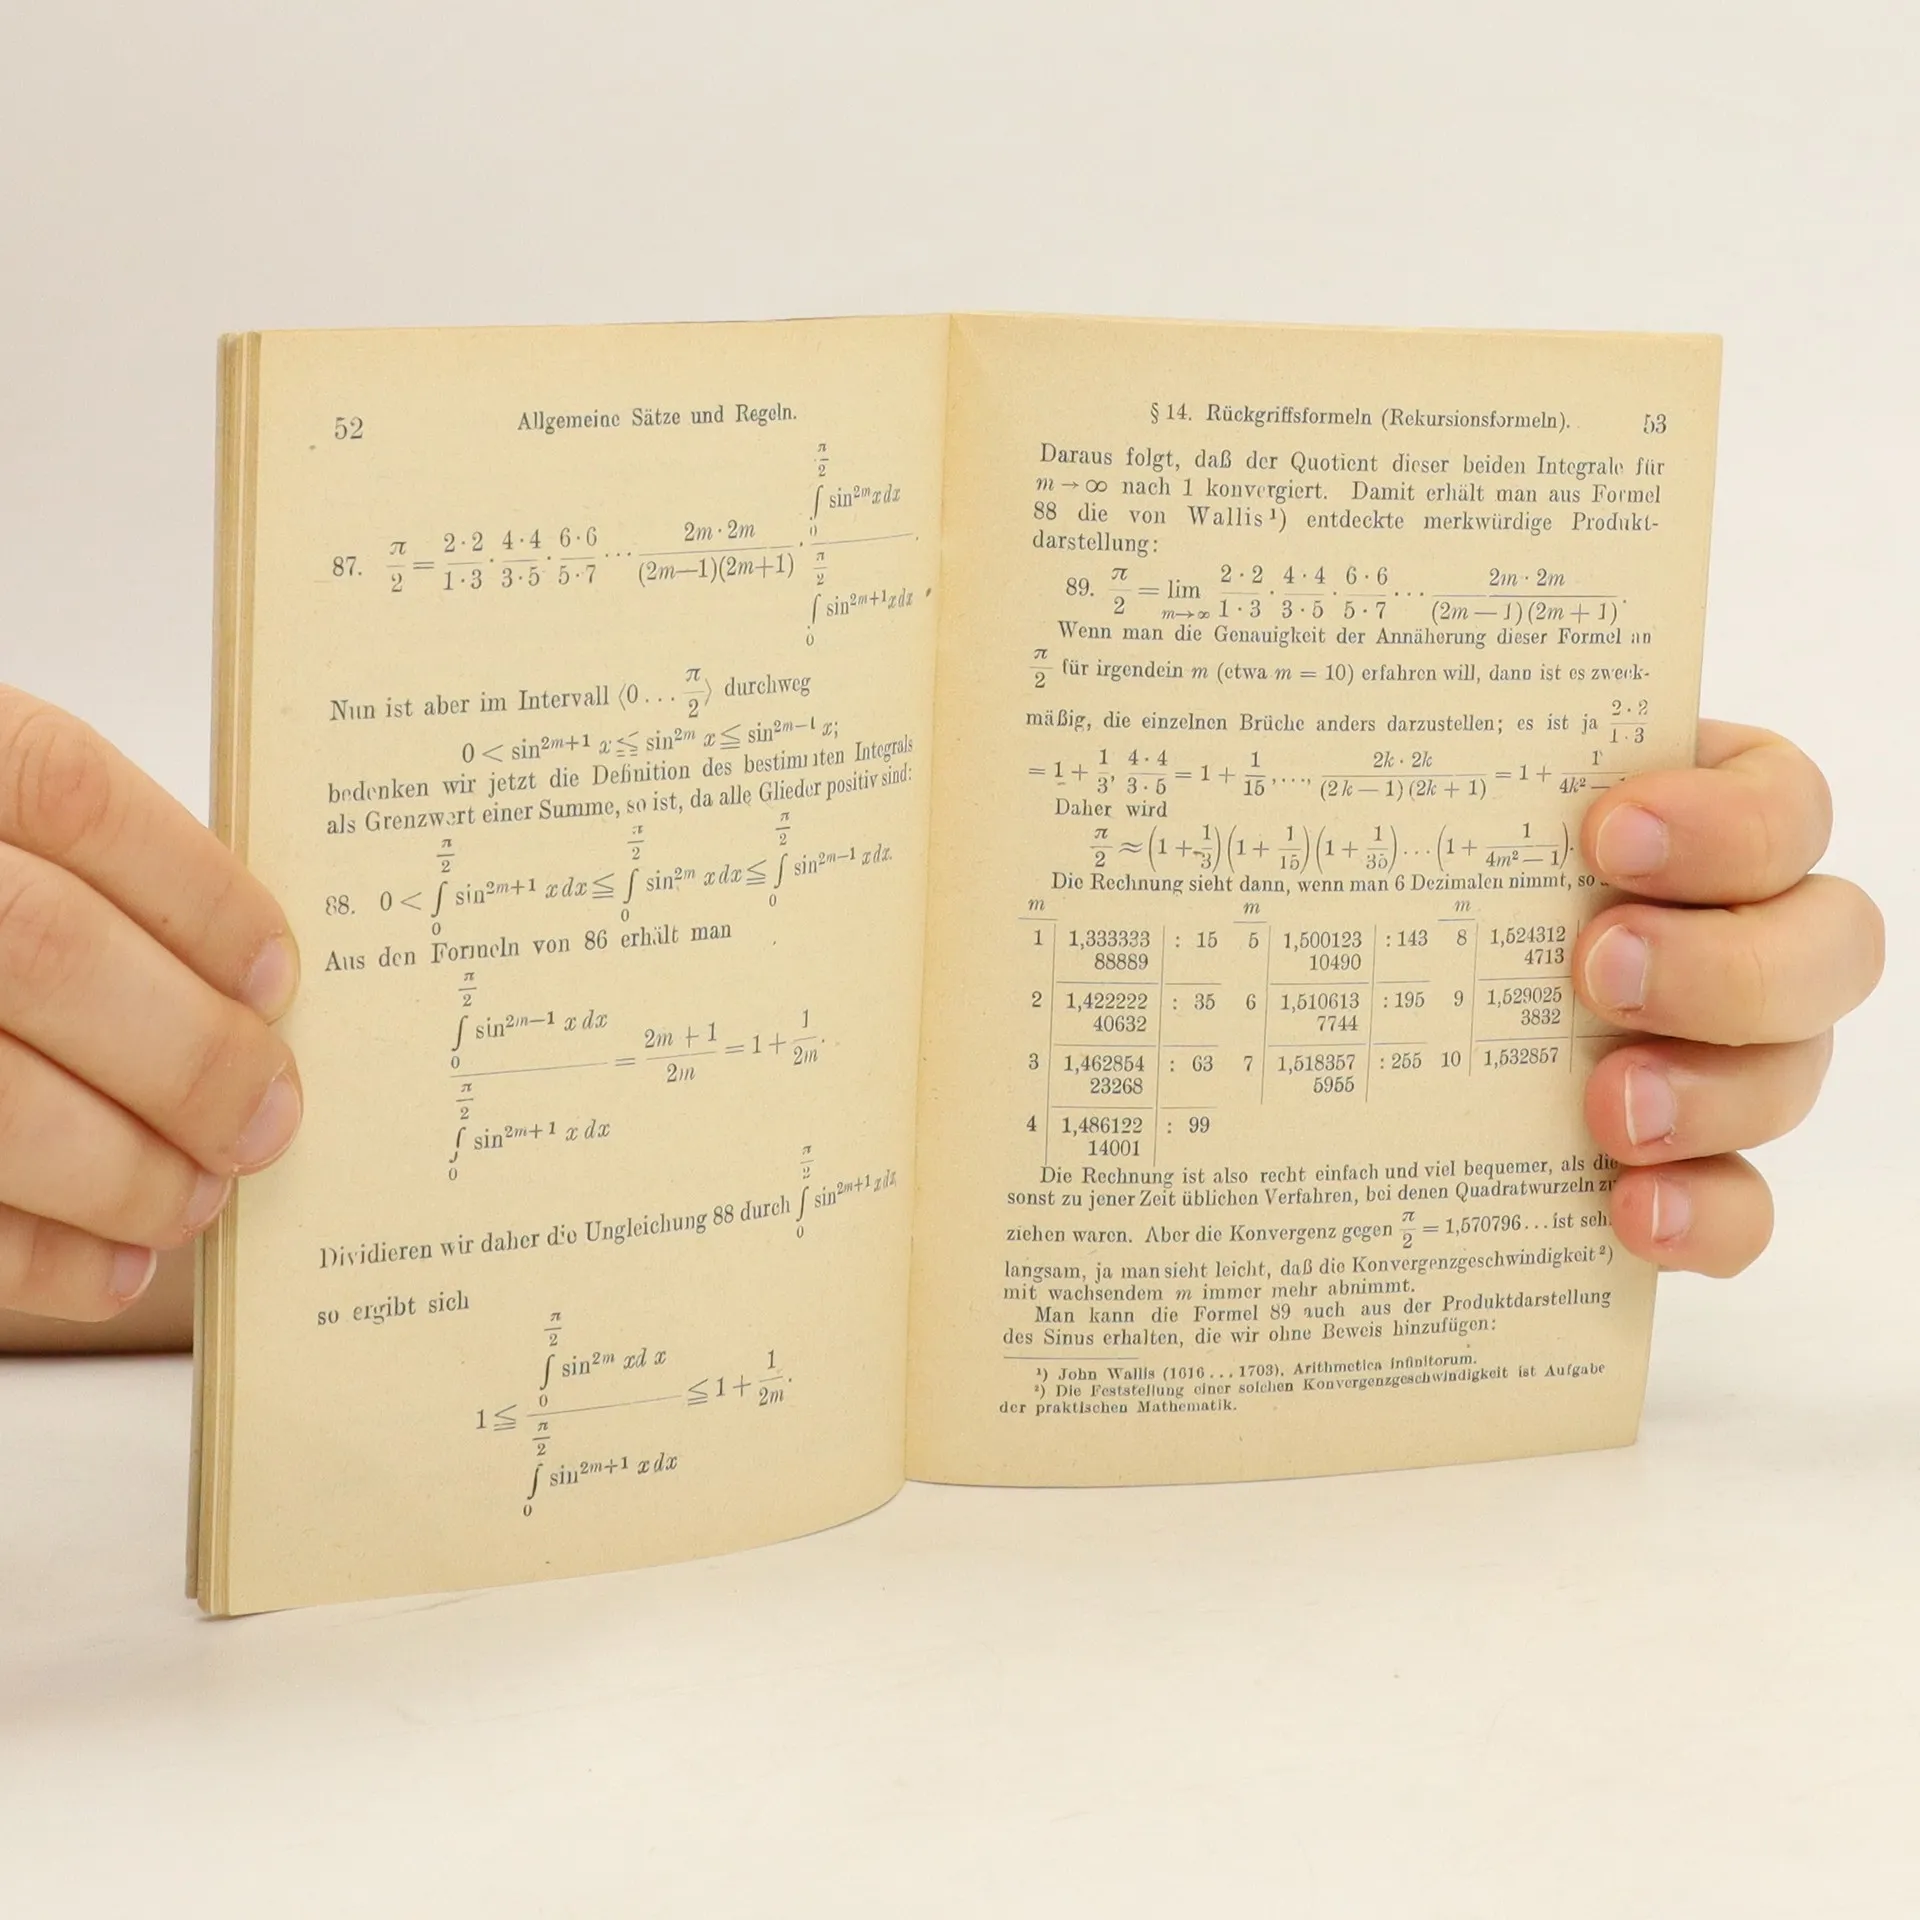 52 Allgemeine Sätze und Regeln.
87. π/2 = 2·2/1·3 · 4·4/3·5 · 6·6/5·7 ··· 2m·2m/(2m—1)(2m+1) · ∫₀^{π/2} sin^{2m} x dx / ∫₀^{π/2} sin^{2m+1} x dx .
Nun ist aber im Intervall ⟨0 ... π/2⟩ durchweg
0 < sin^{2m+1} x ≦ sin^{2m} x ≦ sin^{2m—1} x;
bedenken wir jetzt die Definition des bestimmten Integrals
als Grenzwert einer Summe, so ist, da alle Glieder positiv sind:
88. 0 < ∫₀^{π/2} sin^{2m+1} x dx ≦ ∫₀^{π/2} sin^{2m} x dx ≦ ∫₀^{π/2} sin^{2m—1} x dx.
Aus den Formeln von 86 erhält man
∫₀^{π/2} sin^{2m—1} x dx / ∫₀^{π/2} sin^{2m+1} x dx = 2m + 1/2m = 1 + 1/2m.
Dividieren wir daher die Ungleichung 88 durch ∫₀^{π/2} sin^{2m+1} x dx,
so ergibt sich
1 ≦ ∫₀^{π/2} sin^{2m} x d x / ∫₀^{π/2} sin^{2m+1} x dx ≦ 1 + 1/2m.
§ 14. Rückgriffsformeln (Rekursionsformeln). 53
Daraus folgt, daß der Quotient dieser beiden Integrale für
m → ∞ nach 1 konvergiert. Damit erhält man aus Formel
88 die von Wallis ¹) entdeckte merkwürdige Produkt-
darstellung:
89. π/2 = lim m→∞ 2·2/1·3 · 4·4/3·5 · 6·6/5·7 ··· 2m·2m/(2m — 1)(2m + 1) .
Wenn man die Genauigkeit der Annäherung dieser Formel an
π/2 für irgendein m (etwa m = 10) erfahren will, dann ist es zweck-
mäßig, die einzelnen Brüche anders darzustellen; es ist ja 2·2/1·3
= 1 + 1/3, 4·4/3·5 = 1 + 1/15, ..., 2k·2k/(2k — 1)(2k + 1) = 1 + 1/4k² —
Daher wird
π/2 ≈ (1 + 1/3)(1 + 1/15)(1 + 1/35) ... (1 + 1/4m² — 1).
Die Rechnung sieht dann, wenn man 6 Dezimalen nimmt, so
m m m
1 1,333333 : 15 5 1,500123 : 143 8 1,524312
88889 10490 4713
2 1,422222 : 35 6 1,510613 : 195 9 1,529025
40632 7744 3832
3 1,462854 : 63 7 1,518357 : 255 10 1,532857
23268 5955
4 1,486122 : 99
14001
Die Rechnung ist also recht einfach und viel bequemer, als die
sonst zu jener Zeit üblichen Verfahren, bei denen Quadratwurzeln zu
ziehen waren. Aber die Konvergenz gegen π/2 = 1,570796... ist
langsam, ja man sieht leicht, daß die Konvergenzgeschwindigkeit ²)
mit wachsendem m immer mehr abnimmt.
Man kann die Formel 89 auch aus der Produktdarstellung
des Sinus erhalten, die wir ohne Beweis hinzufügen:
¹) John Wallis (1616 ... 1703), Arithmetica infinitorum.
²) Die Feststellung einer solchen Konvergenzgeschwindigkeit ist Aufgabe
der praktischen Mathematik.